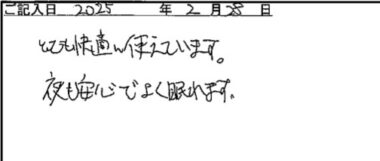 ご記入日 2025 年 2 月 28 日
とても快適に使えています。
夜も安心でよく眠れます。